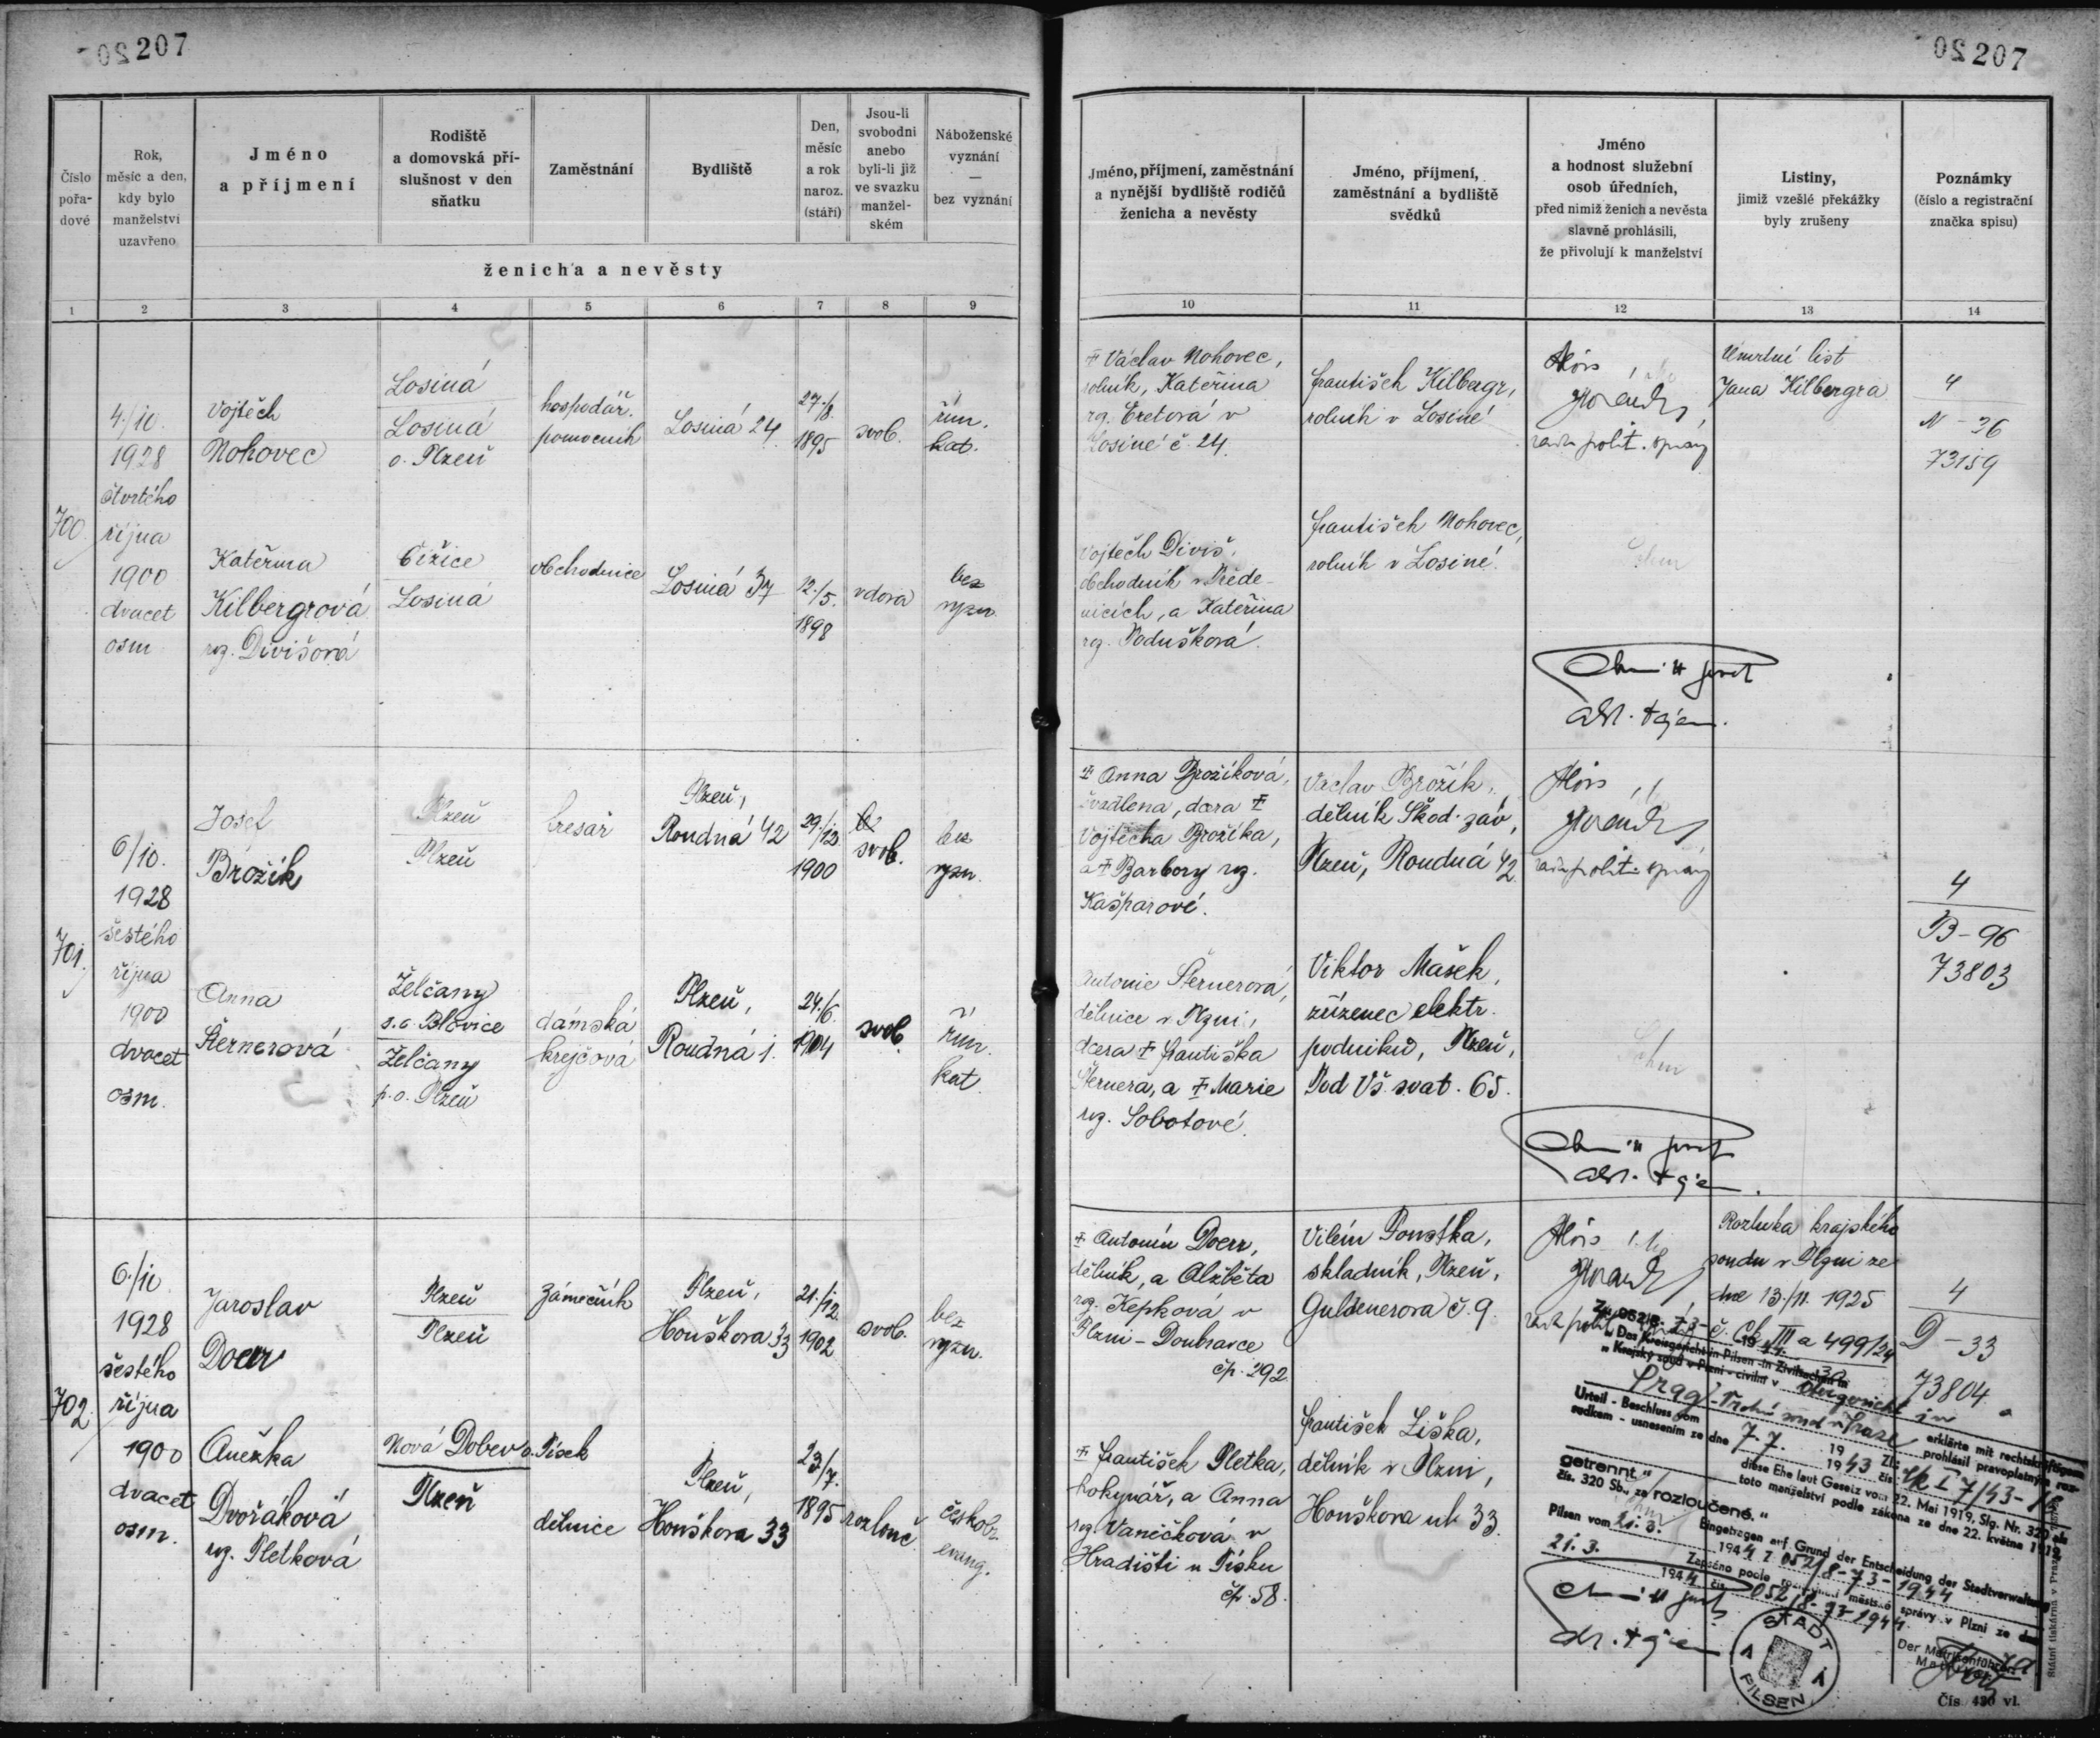 207
207
Číslo pořa- dové
Rok, měsíc a den, kdy bylo manželství uzavřeno
Jméno a příjmení
Rodiště a domovská pří- slušnost v den sňatku
Zaměstnání
Bydliště
Den, měsíc a rok naroz. (stáří)
Jsou-li svobodni anebo byli-li již ve svazku manžel- ském
Náboženské vyznání — bez vyznání
ženicha a nevěsty
Jméno, příjmení, zaměstnání a nynější bydliště rodičů ženicha a nevěsty
Jméno, příjmení, zaměstnání a bydliště svědků
Jméno a hodnost služební osob úředních, před nimiž ženich a nevěsta slavně prohlásili, že přivolují k manželství
Listiny, jimiž vzešlé překážky byly zrušeny
Poznámky (číslo a registrační značka spisu)
1 2 3 4 5 6 7 8 9 10 11 12 13 14
700.
4./10.
1928
čtvrtého
října
1900
dvacet
osm
Vojtěch
Nohovec
Losiná
Losiná
o. Plzeň
hospodář.
pomocník
Losiná 24
27./8.
1895
svob.
řím.
kat.
Kateřina
Kilbergrová
roz. Divišová
Čižice
Losiná
obchodnice
Losiná 37
12./5.
1898
vdova
bez
vyzn.
‡ Václav Nohovec,
rolník, Kateřina
roz. Eretová v
Losiné č. 24.
Vojtěch Diviš,
obchodník v Přede-
nicích, a Kateřina
roz. Podušková.
František Kilbergr,
rolník v Losiné.
František Nohovec,
rolník v Losiné.
Alois
rada polit. správy
Schm
adm. tajem.
Úmrtní list
Jana Kilbergra
4
N - 26
73159
701.
6/10.
1928
šestého
října
1900
dvacet
osm.
Josef
Brožík
Plzeň
Plzeň
tesař
Plzeň,
Roudná 42
29./12.
1900
svob.
bez
vyzn.
Anna
Šternerová
Želčany
s.o. Blovice
Želčany
p.o. Plzeň
dámská
krejčová
Plzeň,
Roudná 1.
24./6.
1904
svob.
řím.
kat.
‡ Anna Brožíková,
švadlena, dcera ‡
Vojtěcha Brožíka,
a ‡ Barbory roz.
Kašparové.
Antonie Šternerová,
dělnice v Plzni,
dcera ‡ Františka
Šternera, a ‡ Marie
roz. Sobotové.
Václav Brožík,
dělník Škod. záv,
Plzeň, Roudná 42.
Viktor Mašek,
zřízenec elektr.
podniků, Plzeň,
Pod Vš. svat. 65.
Alois
rada polit. správy
Schm
adm. tajem.
4
B - 96
73803
702.
6./10
1928
šestého
října
1900
dvacet
osm.
Jaroslav
Doerr
Plzeň
Plzeň
zámečník
Plzeň,
Houškova 33
21./12.
1902
svob.
bez
vyzn.
Anežka
Dvořáková
roz. Pletková
Nová Dobev o. Písek
Plzeň
dělnice
Plzeň,
Houškova 33
23/7.
1895
rozlouč.
českobr.
evang.
‡ Antonín Doerr,
dělník, a Alžběta
roz. Kepková v
Plzni - Doubravce
čp. 292.
‡ František Pletka,
hokynář, a Anna
roz. Vaněčková v
Hradišti u Písku
čp. 58.
Vilém Poustka,
skladník, Plzeň,
Guldenerova č. 9.
František Liška,
dělník v Plzni,
Houškova ul. 33.
Alois
rada polit.
Rozluka krajského
soudu v Plzni ze
dne 13./11. 1925
č. Ck III a 499/24
4
D - 33
73804.
„Das Kreisgericht in Pilsen - in Zivilsachen in
„Krajský soud v Plzni - civilní v Obergericht in
Prag - Vrchní soud v Praze
Urteil - Beschluss vom
sudkem - usnesením ze dne 7.7. 1943 Zl. čís. Ck I 7/43-
erklärte mit rechtskräftigem
prohlásil pravoplatným, roz-
diese Ehe laut Gesetz vom 22. Mai 1919, Slg. Nr. 320 als
toto manželství podle zákona ze dne 22. května 1919,
getrennt."
čís. 320 Sb., za rozloučené."
Eingetragen auf Grund der Entscheidung der Stadtverwaltung
Pilsen vom 21.3. 1944 Z. 052/8-73-1944
Zapsáno podle rozhodnutí městské správy v Plzni ze dne
21.3. 1944 čís. 052/8-73-1944
Der Matrikenführer:
STADT PILSEN
A A
Státní tiskárna v Praze
Čís. 430 vl.